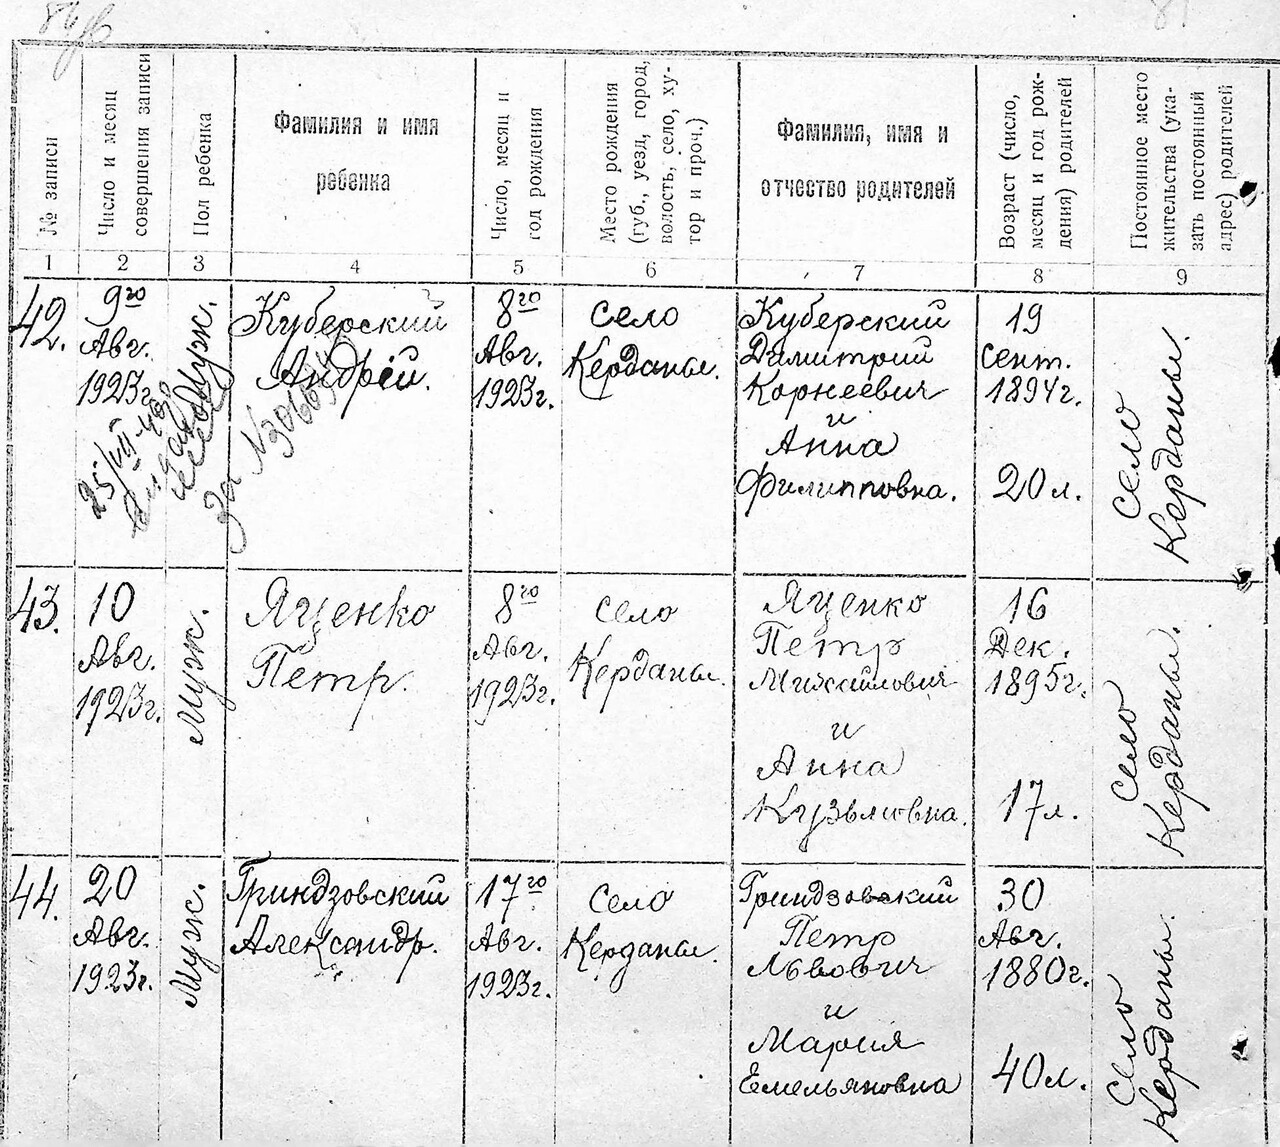 № записи
Число и месяц
совершения записи
Пол ребенка
Фамилия и имя
ребенка
Число, месяц и
год рождения
Место рождения
(губ., уезд, город,
волость, село, ху-
тор и проч.)
Фамилия, имя и
отчество родителей
Возраст (число,
месяц и год рож-
дения) родителей
Постоянное место
жительства (ука-
зать постоянный
адрес) родителей
1 2 3 4 5 6 7 8 9
42.
9го
Авг.
1923г.
Муж.
25/VII
За №
Куберский
Андрей.
8го
Авг.
1923г.
село
Керданы.
Куберский
Димитрий
Корнеевич
и
Анна
Филипповна.
19
сент.
1894г.
20 л.
село
Керданы.
43.
10
Авг.
1923г.
Муж.
Яценко
Петр.
8го
Авг.
1923г.
село
Керданы.
Яценко
Петр
Михайлович
и
Анна
Кузьмовна.
16
Дек.
1895г.
17 л.
село
Керданы.
44.
20
Авг.
1923г.
Муж.
Гриндзовский
Александр.
17го
Авг.
1923г.
село
Керданы.
Гриндзовский
Петр
Львович
и
Мария
Емельяновна
30
Авг.
1880г.
40 л.
село
Керданы.